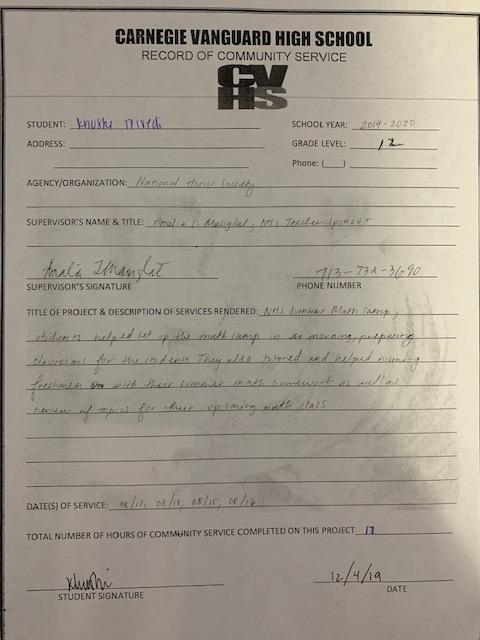 CARNEGIE VANGUARD HIGH SCHOOL
RECORD OF COMMUNITY SERVICE
CV
HS
STUDENT: Khushi Trivedi SCHOOL YEAR: 2019-2020
ADDRESS: GRADE LEVEL: 12
Phone: ( )
AGENCY/ORGANIZATION: National Honor Society
SUPERVISOR'S NAME & TITLE: Amalia I. Mangliat, NHS Teacher Sponsor
SUPERVISOR'S SIGNATURE PHONE NUMBER
713-732-3690
TITLE OF PROJECT & DESCRIPTION OF SERVICES RENDERED: NHS Summer Math Camp,
students helped set up the math camp in the morning, preparing
classrooms for the students They also tutored and helped incoming
freshmen with their summer math homework as well as
review of topics for their upcoming math class
DATE(S) OF SERVICE: 08/12, 08/13, 08/15, 08/16
TOTAL NUMBER OF HOURS OF COMMUNITY SERVICE COMPLETED ON THIS PROJECT 17
Khushi 12/4/19
STUDENT SIGNATURE DATE